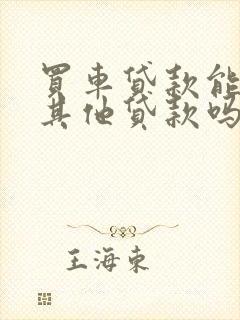 買車貸款能
其他貸款嗎
王海東